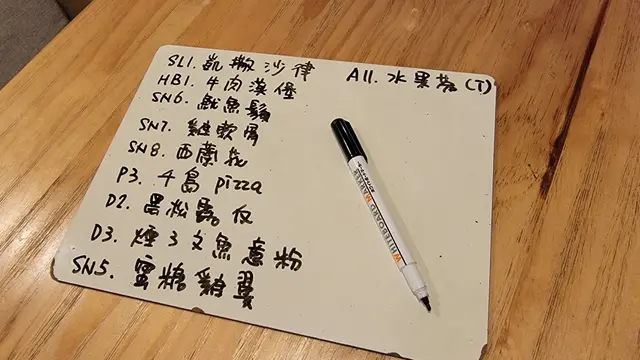 SL1. 凱撒沙律
HB1. 牛肉漢堡
SN6. 魷魚鬚
SN7. 雞軟骨
SN8. 西蘭花
P3. 千島 pizza
D2. 黑松露
D3. 煙三文魚意粉
SN5. 蜜糖雞翼
A11. 水果茶 (T)
WHITEBOARD MARKER